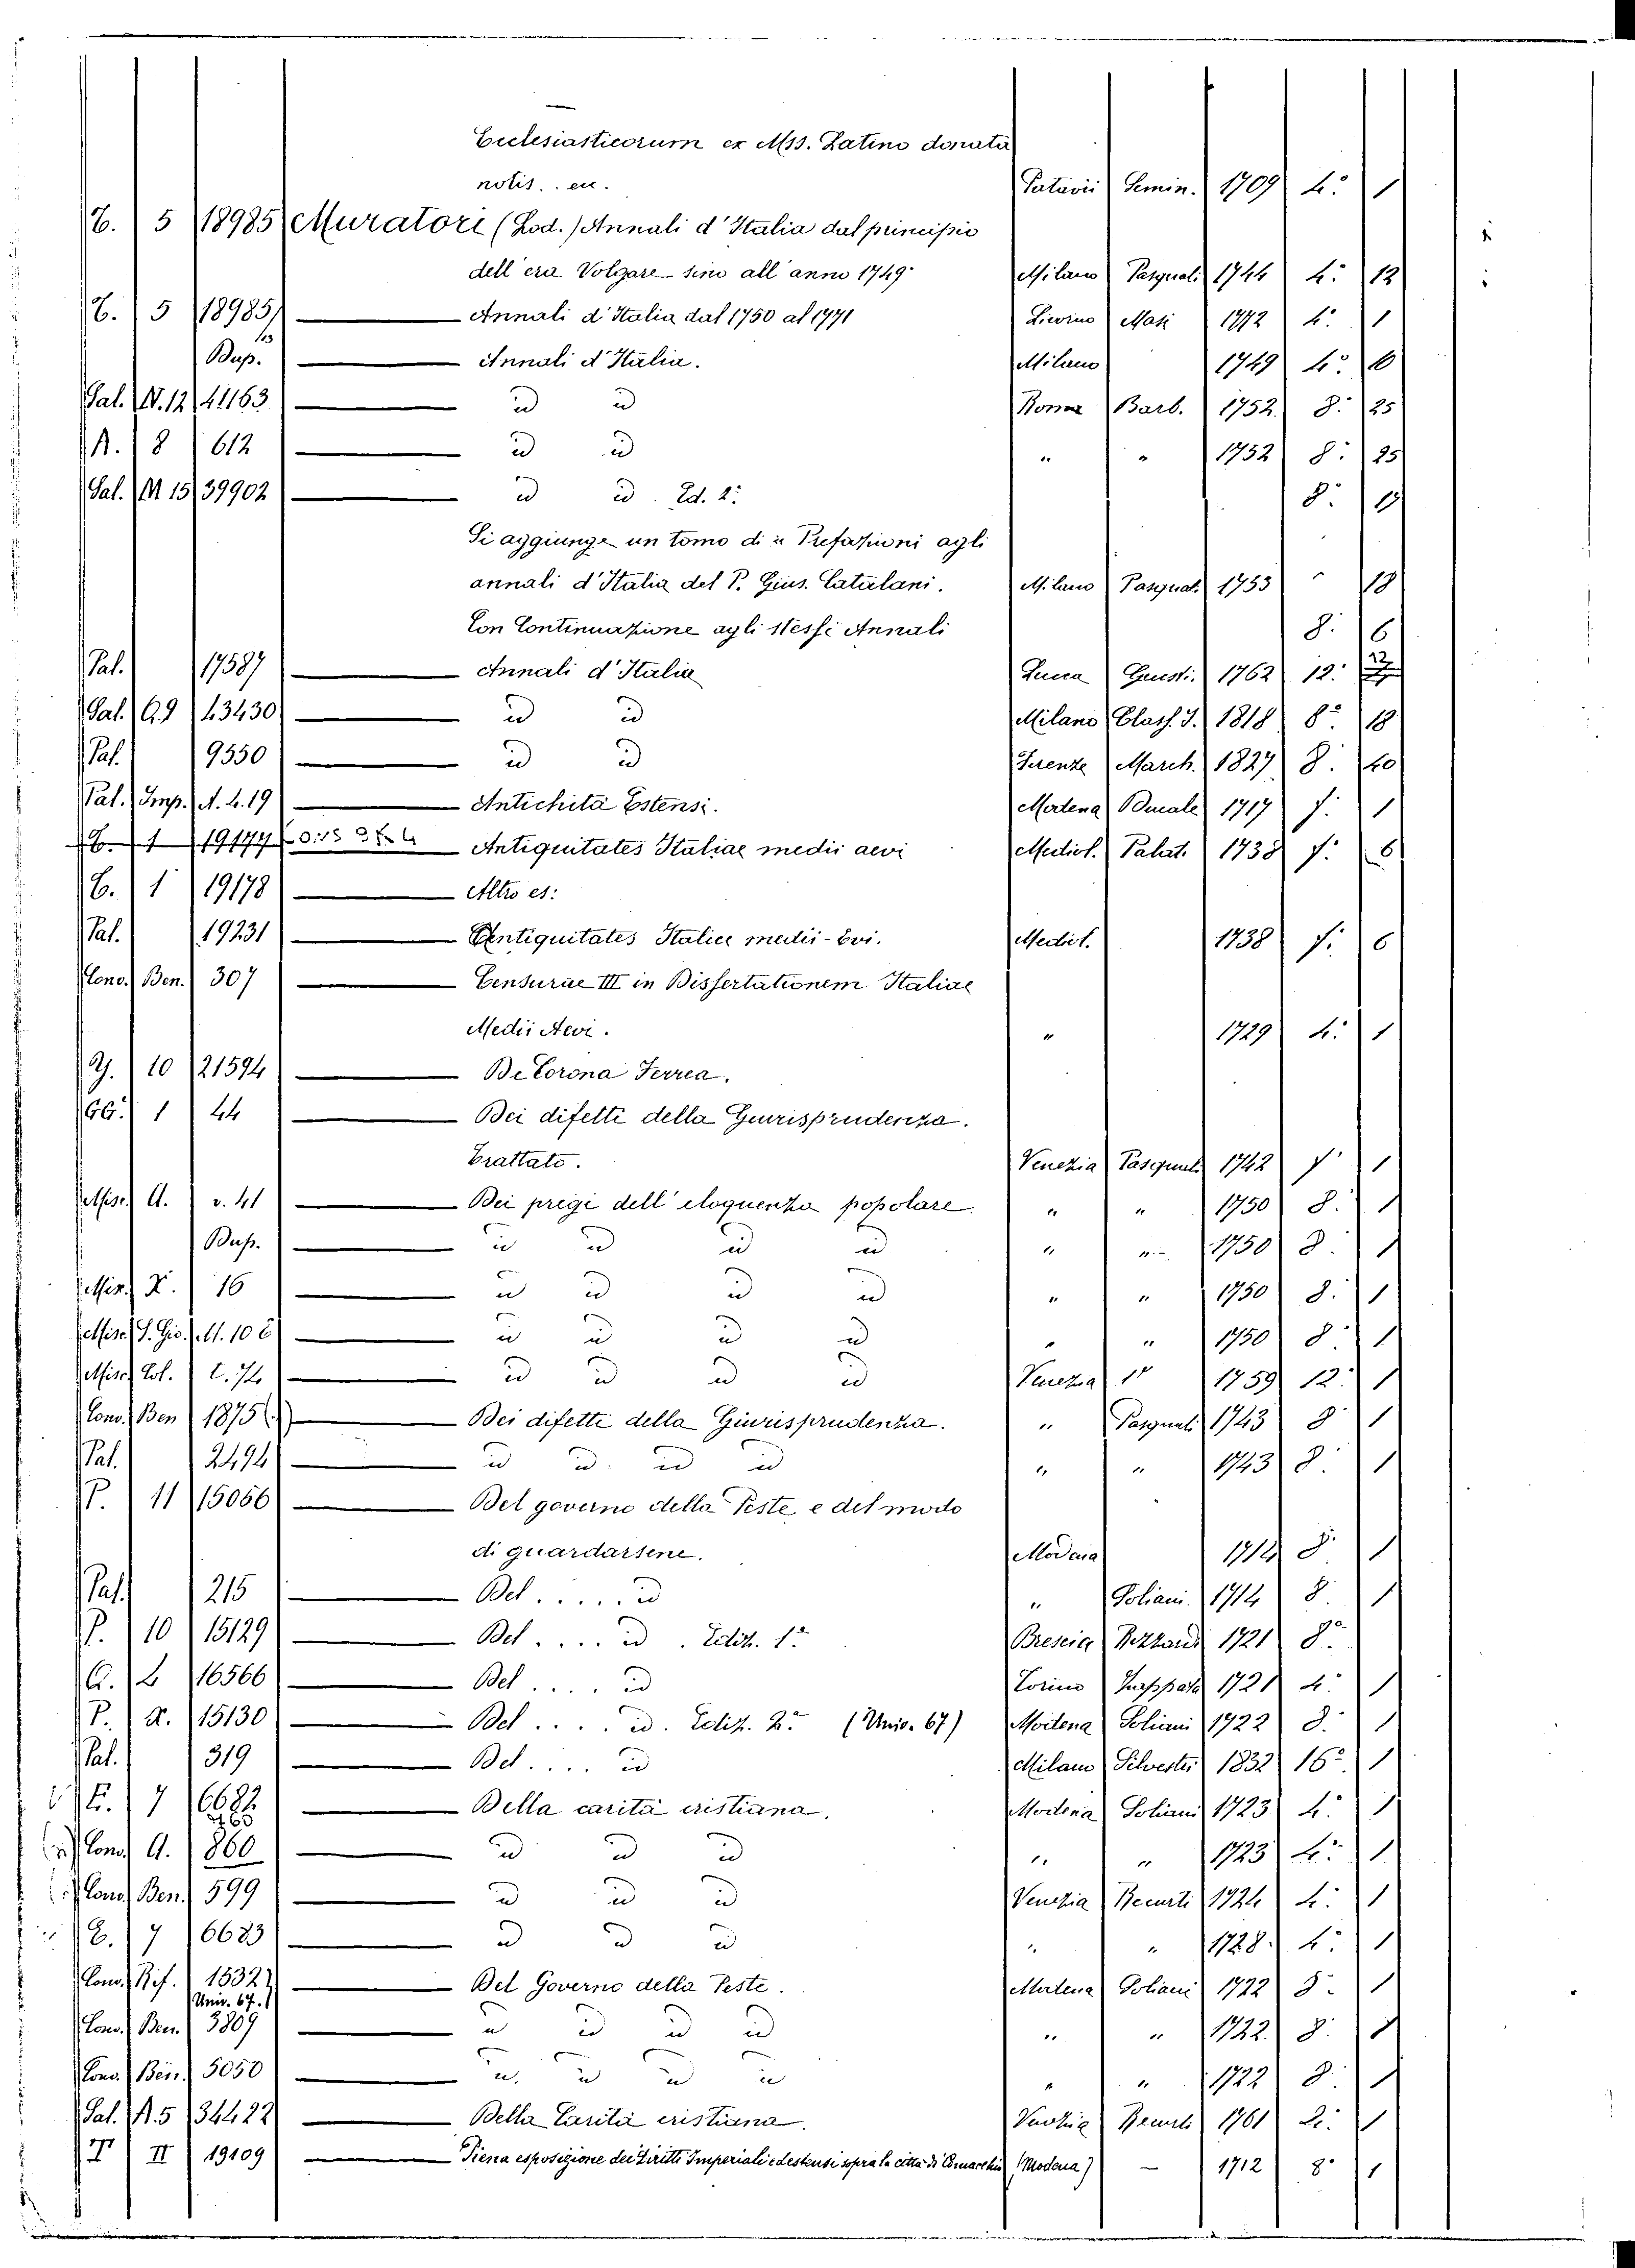 Ecclesiasticorum ex Mss. Latino donata
notis . . etc. Patavii Semin. 1709 4.º 1
E. 5 18985 Muratori (Lod.) Annali d'Italia dal principio
dell'era Volgare sino all'anno 1749 Milano Pasquali 1744 4.º 12
E. 5 18985/13 Annali d'Italia dal 1750 al 1771 Livorno Masi 1772 4.º 1
Dup. Annali d'Italia. Milano 1749 4.º 6
Sal. N. 12 41163 id id Roma Barb. 1752 8.º 25
A. 8 612 id id " " 1752 8.º 25
Sal. M 15 39902 id id. Ed. 2.ª 8.º
Si aggiunge un tomo di "Prefazioni agli
annali d'Italia del P. Gius. Catalani. Milano Pasquali 1753 " 18
Con Continuazione agli stessi Annali 8.º 6
Pal. 17587 Annali d'Italia Lucca Giusti. 1762 12.º
Sal. Q.9 43430 id id Milano Class. I. 1818 8.º 18
Pal. 9550 id id Firenze March. 1827 8.º 40
Pal. Imp. A. 4. 19 Antichità Estensi. Modena Ducale 1717 f.º 1
E. 1 19177 Antiquitates Italiae medii aevi Mediol. Palat. 1738 f.º 6
E. 1 19178 Altro es:
Pal. 19231 Antiquitates Italice medii-Evi. Mediol. 1738 f.º 6
Conv. Ben. 307 Censurae III in Dissertationem Italiae
Medii Aevi. " 1729 4.º 1
Y. 10 21594 De Corona Ferrea.
GG. 1 44 Dei difetti della Giurisprudenza.
Trattato. Venezia Pasquali 1742 f.º 1
Misc. A. v. 41 Dei pregi dell'eloquenza popolare. " " 1750 8.º 1
Dup. id id id id " " 1750 8.º 1
Misc. X. 16 id id id id " " 1750 8.º 1
Misc. S. Gio. M. 10 6 id id id id " " 1750 8.º 1
Misc. Col. t. 74 id id id id Venezia 1759 12.º 1
Conv. Ben 1875 Dei difetti della Giurisprudenza. " Pasquali 1743 8.º 1
Pal. 2494 id id. id id " " 1743 8.º 1
P. 11 15066 Del governo della Peste, e del modo
di guardarsene. Modena 1714 8.º 1
Pal. 215 Del . . . . . id " Soliani. 1714 8.º 1
P. 10 15129 Del . . . . id . Ediz. 1.ª Brescia Rizzardi 1721 8.º
Q. 2 16566 Del . . . . id Torino Zappata 1721 4.º 1
P. X. 15130 Del . . . . id. Ediz. 2.ª (Univ. 67) Modena Soliani 1722 8.º 1
Pal. 319 Del . . . . id Milano Silvestri 1832 16.º 1
E. 7 6682 Della carità cristiana. Modena Soliani 1723 4.º 1
Conv. A. 860 id id id " " 1723 4.º 1
Conv. Ben. 599 id id id Venezia Recurti 1724 4.º 1
E. 7 6683 id id id " " 1728. 4.º 1
Conv. Rif. 1532 Del Governo della Peste. Modena Soliani 1722 8.º 1
Univ. 67.
Conv. Ben. 3809 id id id id " " 1722. 8.º 1
Conv. Ben. 5050 id. id id id " " 1722 8.º 1
Sal. A.5 34422 Della Carità cristiana. Venezia Recurti 1761 1
T II 19109 Piena esposizione dei Diritti Imperiali ed estensi sopra la città di Comacchio (Modena) — 1712 8º 1